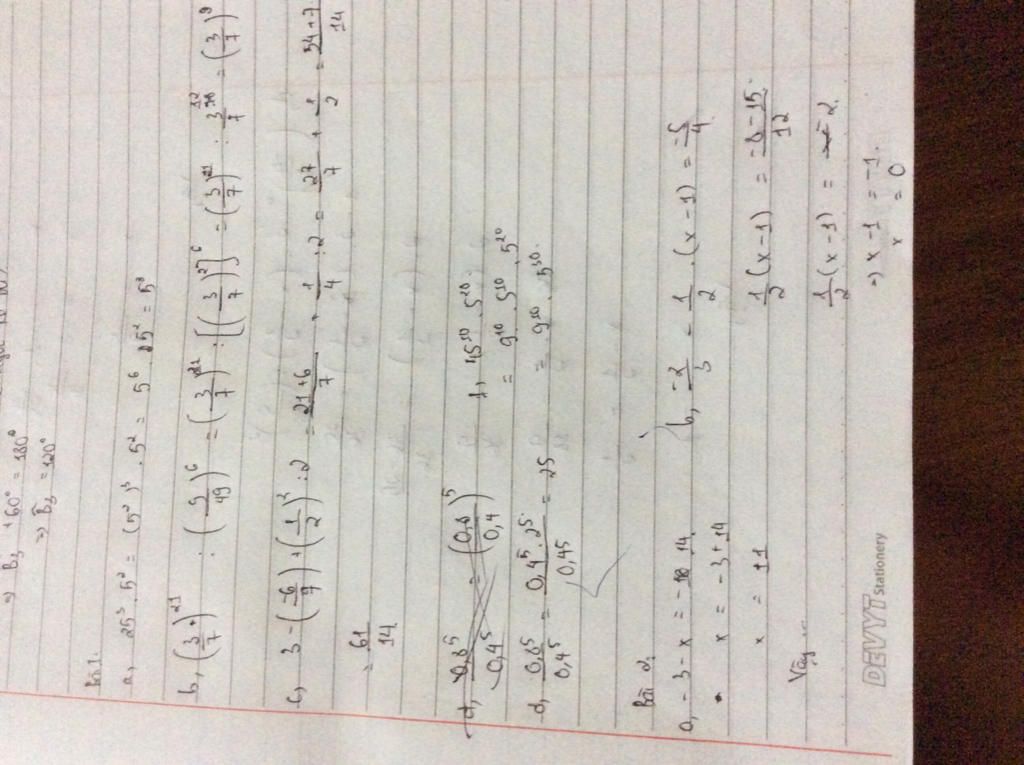 =) B₃ + 60° = 180°
=) B̂₃ = 120°
Bài 1.
a, 25³ . 5² = (5²)³ . 5² = 5⁶ . 5² = 5⁸
b, (3/7)²¹ : (9/49)⁶ = (3/7)²¹ : [(3/7)²]⁶ = (3/7)²¹ : 3/7¹² = (3/7)⁹
c, 3 - (-6/7) + (1/2)² : 2 = 21+6/7 + 1/4 : 2 = 27/7 + 1/2 = 54+7/14
= 61/14
d, 0,8⁵/0,4⁵ = (0,8/0,4)⁵
d, 0,8⁵/0,4⁵ = 0,4⁵ . 2⁵/0,4⁵ = 25
f, 45¹⁰ . 5²⁰
= 9¹⁰ . 5¹⁰ . 5²⁰
= 9¹⁰ . 5³⁰.
Bài 2
a, - 3 - x = - 14
x = - 3 + 14
x = 11
Vậy
b, -2/3 - 1/2 . (x - 1) = -5/4
1/2 (x - 1) = -8 - 15/12
1/2 (x - 1) = 2.
=) x - 1 = -1.
x = 0
DEVYT Stationery